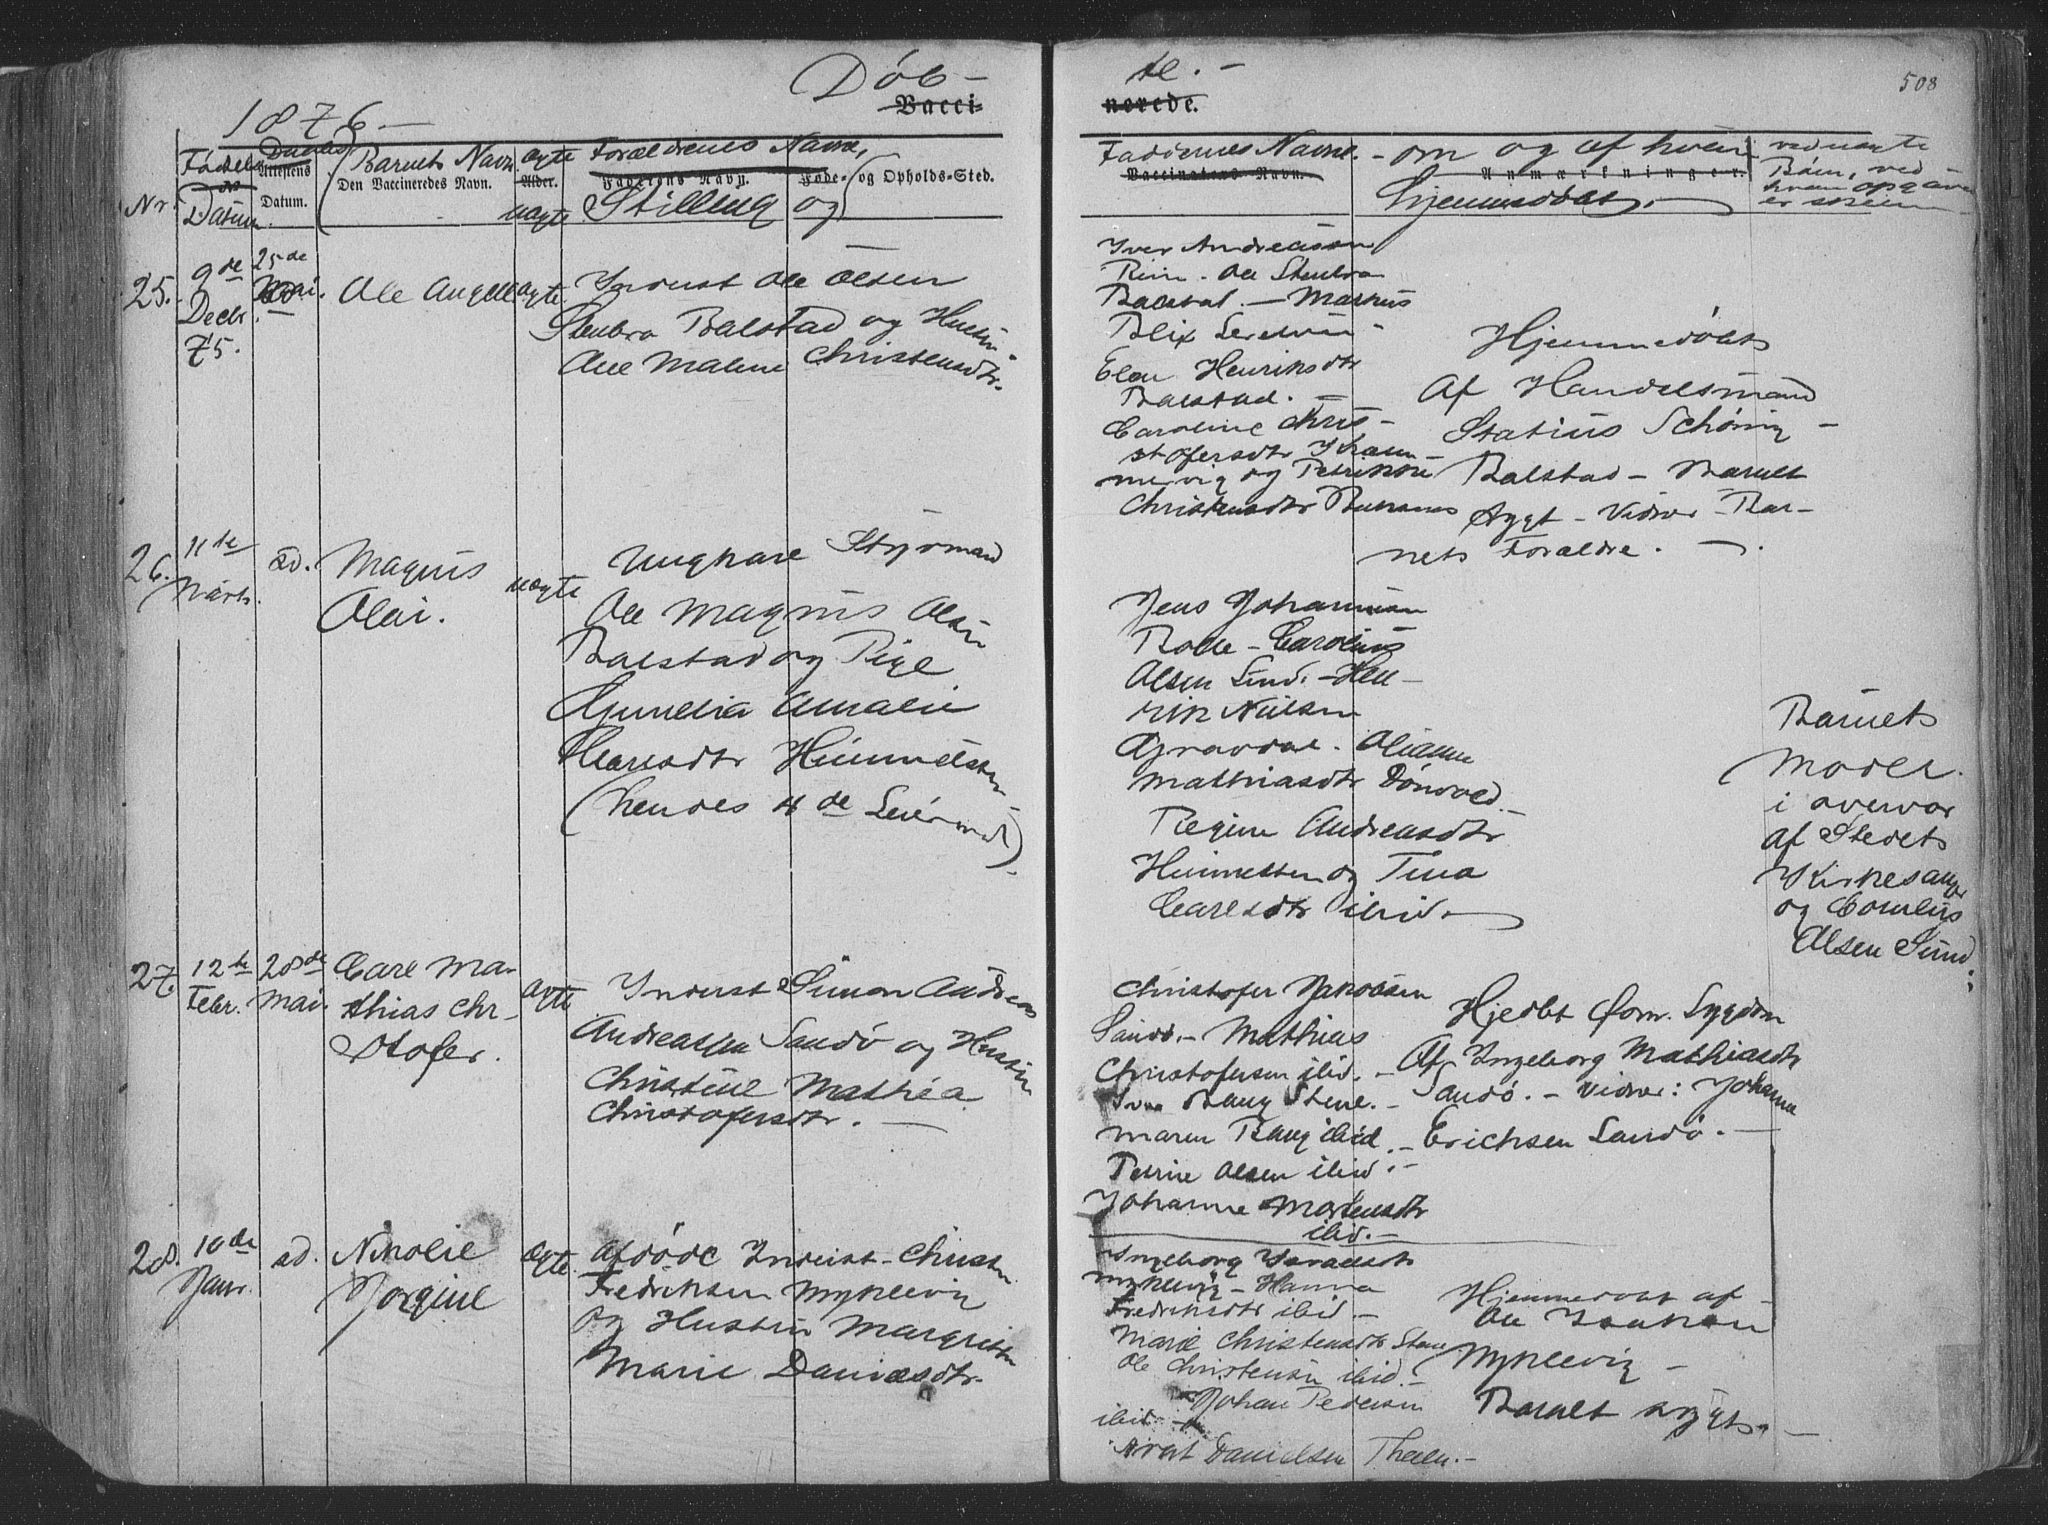 Døb-
te. -
508
1876 -
Vacci-
nerede.
Nr.
Fødsels
Datum
Daabs
Attestens
Datum.
Barnets Navn
Den Vaccineredes Navn.
ægte
Alder.
uægte
Forældrenes Navne,
Faderens Navn.
Føde- og Opholds-Sted.
Stilling og
Faddernes Navne.
Vaccinatens Navn.
- om og af hvem
Anmærkninger.
Hjemmedøbt. -
ved uægte
Børn, ved
hvem opgaven
er skeen
25.
9de
Decbr.
75.
25de
Mai.
Ole
ægte
Inderst Ole Olsen
Stenbro Balstad og Hustru
Ane Malene Christensdtr.
Iver Andreassen
Ole Stenbro
Balstad. - Markus
Blix
Elen Henriksdtr
Balstad. -
Caroline Chris-
stofersdtr
og
Christensdtr
Hjemmedøbt
Af Handelsmand
Statius Schøning -
Balstad - Barnet
sygt - Vidner Bar-
nets Forældre. -
26.
11te
Marts.
do.
Magnus
Olai.
uægte
Ungkarl Styrmand
Ole Magnus Olsen
Balstad og Pige
Amalie
Himmelsten
(hendes 4de Leiermaal).
Jens Johannesen
Carolius
Olsen Sund. - Hen-
rik Nilsen
Gravdal. Oleanne
Mathiasdtr
Regine Andreasdtr
Himmelsten og Tina
ibid. -
Barnets
Moder.
i overvær
af Stedets
Kirkesanger
og Cornelius
Olsen Sund
27.
12te
Febr.
28de
Mai.
Carl Ma-
thias Chr-
stofer.
ægte
Inderst Simon Andreas
Andreassen Sandø og Hustru
Christine Mathea
Christofersdtr. -
Christofer Jakobsen
Sandø. - Mathias
Christofersen ibid. -
Bang Stene. -
Maren Bang ibid. -
Petrine Olsen ibid. -
Johanne Mortensdtr
ibid. -
Hjedbt Sygdom
Af Ingeborg Mathiasdtr
Sandø. - Vidner: Johanna
Erichsen Sandø. -
28.
10de
Janr.
do.
Nikolie
Jorgine
ægte.
Afdøde Inderst - Christen
Fredriksen Myklevig
og Hustru Margrethe
Marie Danielsdtr.
Ingeborg Israelsdtr
Myklevig - Hanna
Fredriksdtr ibid. -
Marie Christensdtr Stene
Ole Christensen ibid. -
Johan Pedersen
ibid -
Danielsen
Hjemmedøbt af -
Ole Isaksen
Myklevig -
Barnet sygt. -